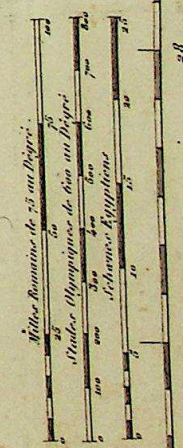 Milles Romains de 75 au Dégré.
0 25 50 75 100
Stades Olympiques de 600 au Dégré
0 100 200 300 400 500 600 700 800
Schœnes Egyptiens
0 5 10 15 20 25
28